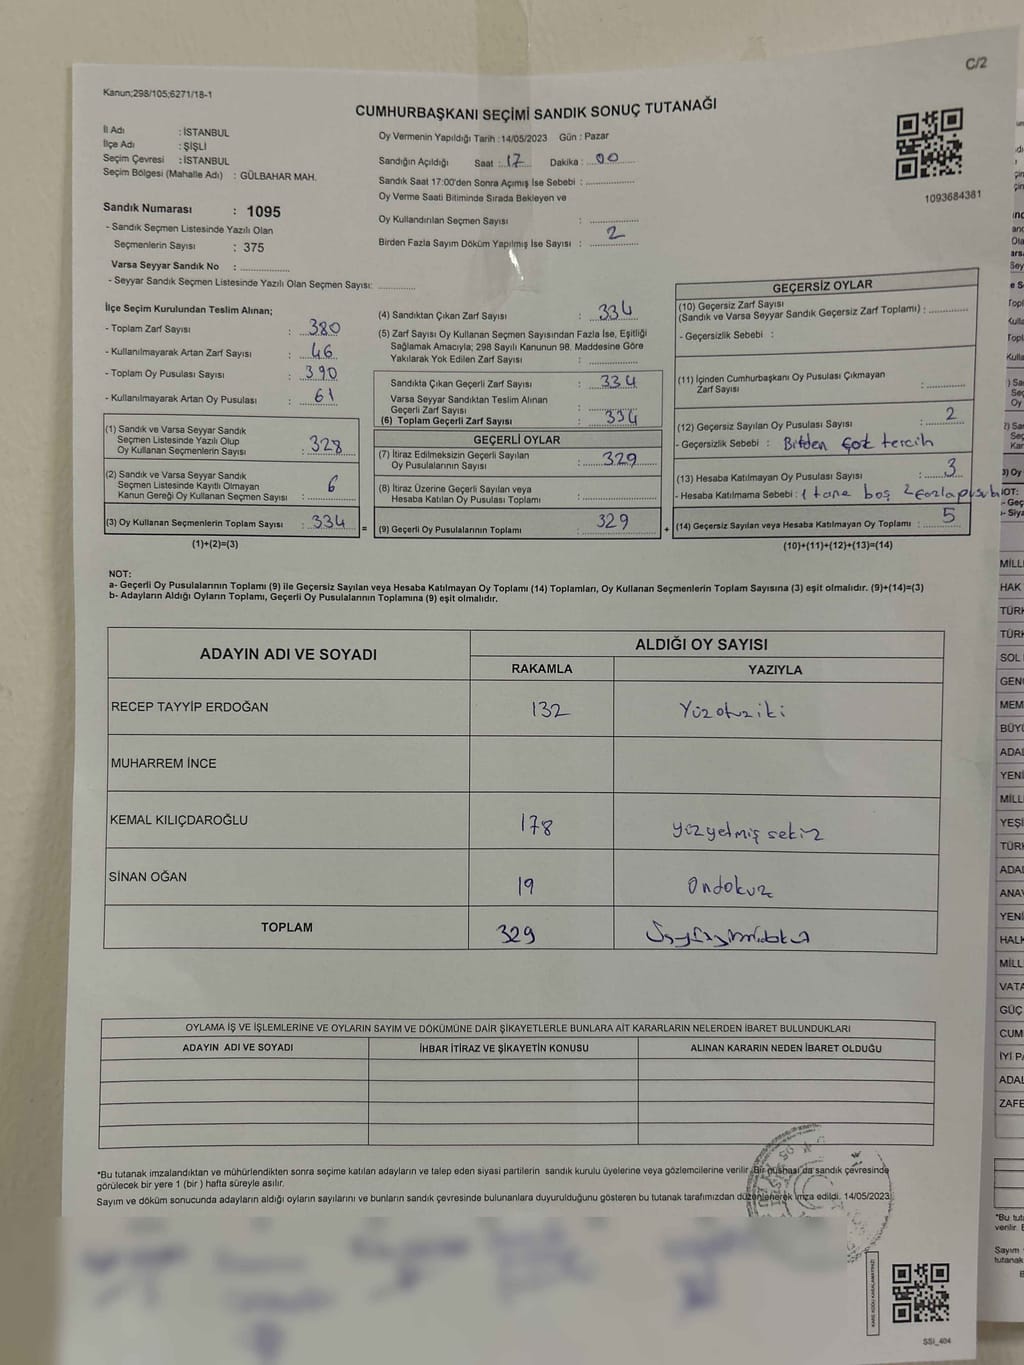 C/2
Kanun;298/105;6271/18-1
CUMHURBAŞKANI SEÇİMİ SANDIK SONUÇ TUTANAĞI
İl Adı : İSTANBUL
İlçe Adı : ŞİŞLİ
Seçim Çevresi : İSTANBUL
Seçim Bölgesi (Mahalle Adı) : GÜLBAHAR MAH.
Sandık Numarası : 1095
- Sandık Seçmen Listesinde Yazılı Olan
Seçmenlerin Sayısı : 375
Varsa Seyyar Sandık No : ................
- Seyyar Sandık Seçmen Listesinde Yazılı Olan Seçmen Sayısı: ............
Oy Vermenin Yapıldığı Tarih : 14/05/2023 Gün : Pazar
Sandığın Açıldığı Saat : 17 Dakika : 00
Sandık Saat 17:00'den Sonra Açımış İse Sebebi : ................
Oy Verme Saati Bitiminde Sırada Bekleyen ve
Oy Kullandırılan Seçmen Sayısı : ................
Birden Fazla Sayım Döküm Yapılmış İse Sayısı : 2
1093684381
İlçe Seçim Kurulundan Teslim Alınan;
- Toplam Zarf Sayısı : 380
- Kullanılmayarak Artan Zarf Sayısı : 46
- Toplam Oy Pusulası Sayısı : 390
- Kullanılmayarak Artan Oy Pusulası : 61
(1) Sandık ve Varsa Seyyar Sandık
Seçmen Listesinde Yazılı Olup
Oy Kullanan Seçmenlerin Sayısı : 328
(2) Sandık ve Varsa Seyyar Sandık
Seçmen Listesinde Kayıtlı Olmayan
Kanun Gereği Oy Kullanan Seçmen Sayısı : 6
(3) Oy Kullanan Seçmenlerin Toplam Sayısı : 334 =
(1)+(2)=(3)
(4) Sandıktan Çıkan Zarf Sayısı : 334
(5) Zarf Sayısı Oy Kullanan Seçmen Sayısından Fazla İse, Eşitliği
Sağlamak Amacıyla; 298 Sayılı Kanunun 98. Maddesine Göre
Yakılarak Yok Edilen Zarf Sayısı : ................
Sandıkta Çıkan Geçerli Zarf Sayısı : 334
Varsa Seyyar Sandıktan Teslim Alınan
Geçerli Zarf Sayısı : ................
(6) Toplam Geçerli Zarf Sayısı : 334
GEÇERLİ OYLAR
(7) İtiraz Edilmeksizin Geçerli Sayılan
Oy Pusulalarının Sayısı : 329
(8) İtiraz Üzerine Geçerli Sayılan veya
Hesaba Katılan Oy Pusulası Toplamı : ................
(9) Geçerli Oy Pusulalarının Toplamı : 329 +
GEÇERSİZ OYLAR
(10) Geçersiz Zarf Sayısı
(Sandık ve Varsa Seyyar Sandık Geçersiz Zarf Toplamı) : ............
- Geçersizlik Sebebi :
(11) İçinden Cumhurbaşkanı Oy Pusulası Çıkmayan
Zarf Sayısı : ............
(12) Geçersiz Sayılan Oy Pusulası Sayısı : 2
- Geçersizlik Sebebi : Birden çok tercih
(13) Hesaba Katılmayan Oy Pusulası Sayısı : 3
- Hesaba Katılmama Sebebi : 1 tane boş 2 fazla pusula
(14) Geçersiz Sayılan veya Hesaba Katılmayan Oy Toplamı : 5
(10)+(11)+(12)+(13)=(14)
NOT:
a- Geçerli Oy Pusulalarının Toplamı (9) ile Geçersiz Sayılan veya Hesaba Katılmayan Oy Toplamı (14) Toplamları, Oy Kullanan Seçmenlerin Toplam Sayısına (3) eşit olmalıdır. (9)+(14)=(3)
b- Adayların Aldığı Oyların Toplamı, Geçerli Oy Pusulalarının Toplamına (9) eşit olmalıdır.
ADAYIN ADI VE SOYADI ALDIĞI OY SAYISI
RAKAMLA YAZIYLA
RECEP TAYYİP ERDOĞAN 132 Yüzotuziki
MUHARREM İNCE
KEMAL KILIÇDAROĞLU 178 yüzyetmiş sekiz
SİNAN OĞAN 19 Ondokuz
TOPLAM 329
OYLAMA İŞ VE İŞLEMLERİNE VE OYLARIN SAYIM VE DÖKÜMÜNE DAİR ŞİKAYETLERLE BUNLARA AİT KARARLARIN NELERDEN İBARET BULUNDUKLARI
ADAYIN ADI VE SOYADI İHBAR İTİRAZ VE ŞİKAYETİN KONUSU ALINAN KARARIN NEDEN İBARET OLDUĞU
*Bu tutanak imzalandıktan ve mühürlendikten sonra seçime katılan adayların ve talep eden siyasi partilerin sandık kurulu üyelerine veya gözlemcilerine verilir. Bir nüshası da sandık çevresinde
görülecek bir yere 1 (bir ) hafta süreyle asılır.
Sayım ve döküm sonucunda adayların aldığı oyların sayılarını ve bunların sandık çevresinde bulunanlara duyurulduğunu gösteren bu tutanak tarafımızdan düzenlenerek imza edildi. 14/05/2023
KARE KODU KARALAMAYINIZ!
SSİ_404